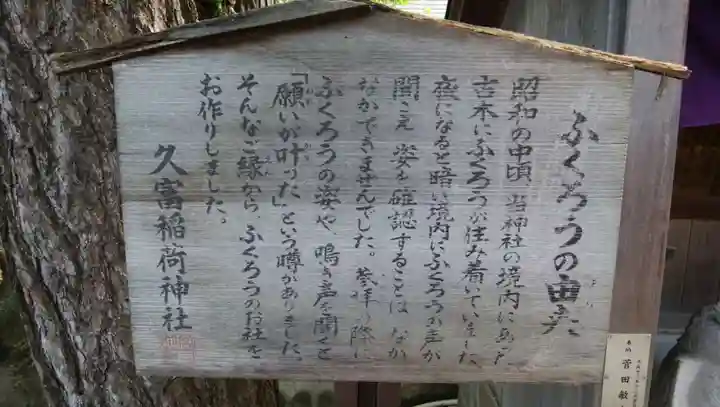 ふくろうの由来
昭和の中頃、当神社の境内にあった
古木にふくろうが住み着いていました
夜になると暗い境内にふくろうの声が
聞こえ 姿を確認することは なか
なかできませんでした。参拝の際に
ふくろうの姿や、鳴き声を聞くと
「願いが叶った」という噂がありました。
そんなご縁から、ふくろうのお社を
お作りしました。
久富稲荷神社
奉納
菅田敏